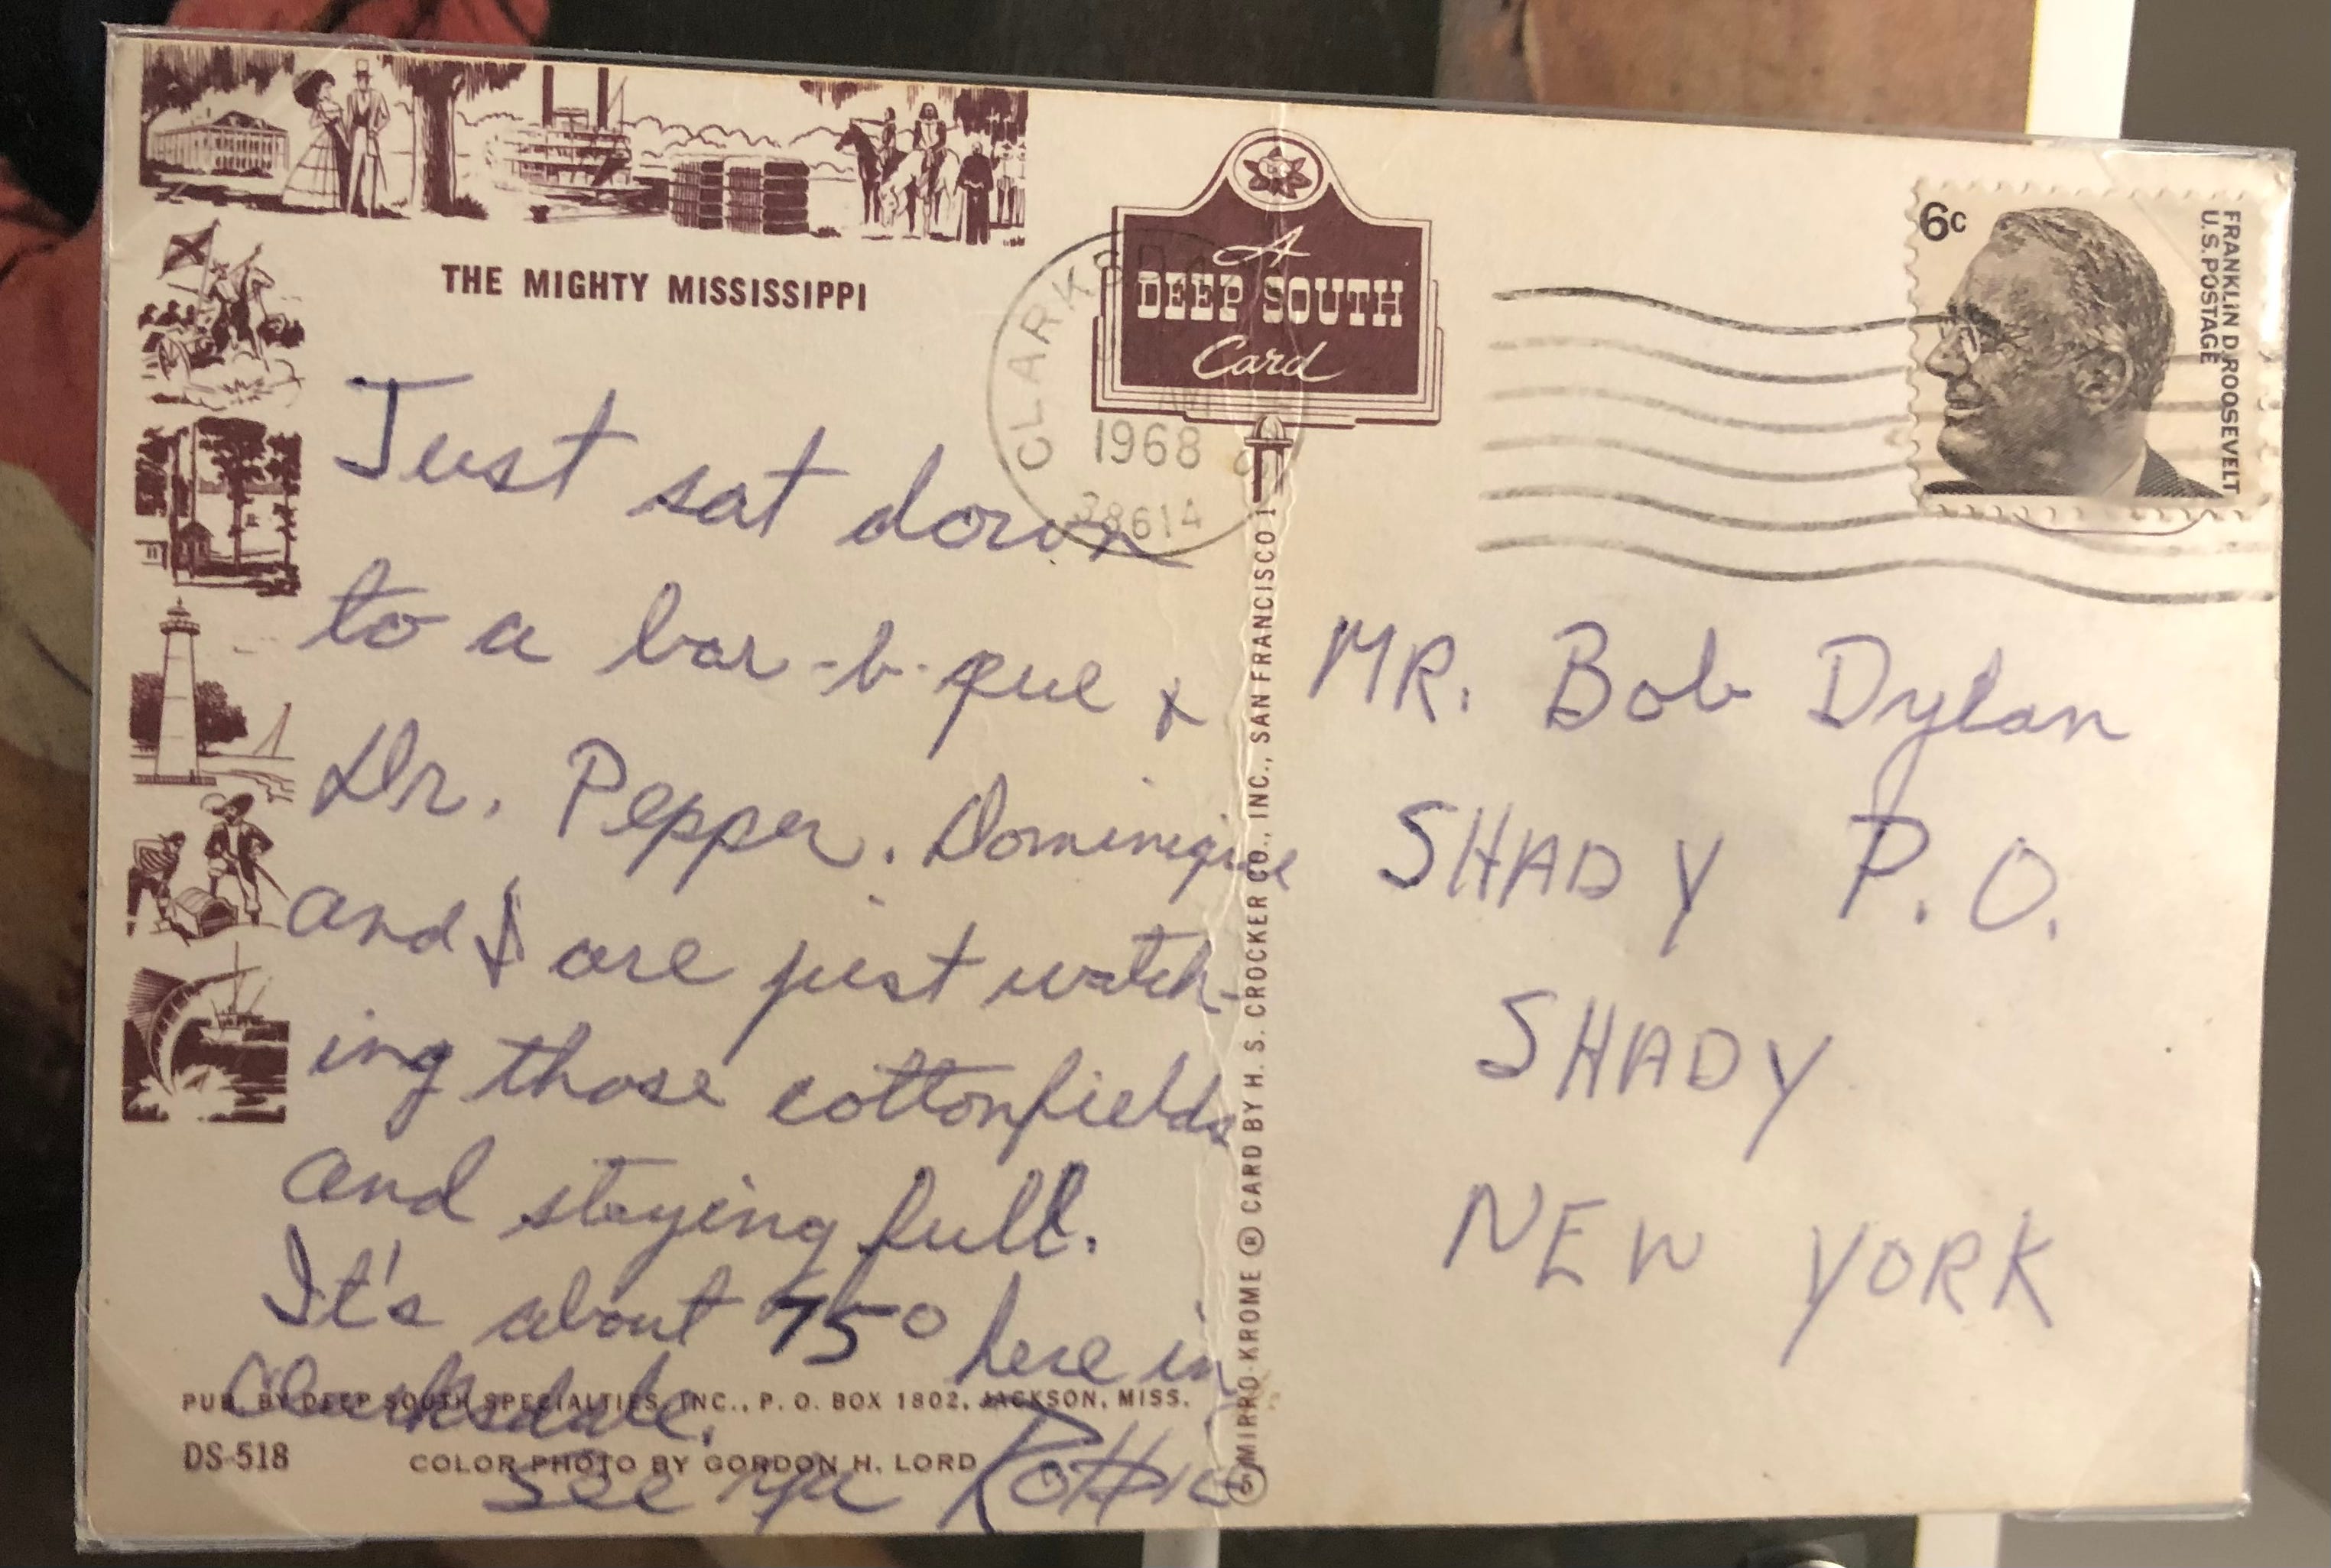 THE MIGHTY MISSISSIPPI
Just sat down
to a bar-b-que &
Dr. Pepper. Dominique
and I are just watch-
ing those cottonfields
and staying full.
It's about 75° here in
Clarksdale.
see ya Robbie
PUB. BY DEEP SOUTH SPECIALTIES, INC., P. O. BOX 1802, JACKSON, MISS.
DS-518
COLOR PHOTO BY GORDON H. LORD
A
DEEP SOUTH
Card
CLARKSD
1968
38614
MIRRO-KROME ® CARD BY H. S. CROCKER CO., INC., SAN FRANCISCO 1
6c
FRANKLIN D. ROOSEVELT
U.S. POSTAGE
MR. Bob Dylan
SHADY P.O.
SHADY
NEW YORK